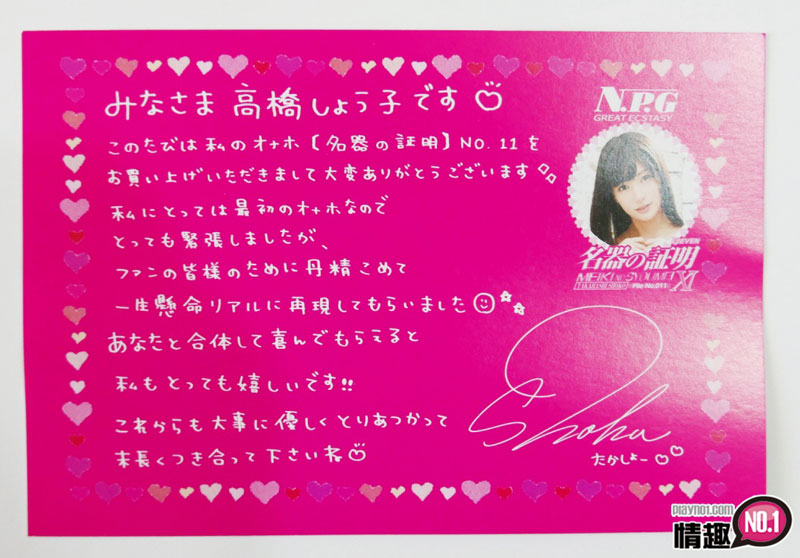 みなさま 高橋しょう子です
このたびは私のオナホ〔名器の証明〕NO.11を
お買い上げいただきまして大変ありがとうございます
私にとっては最初のオナホなので
とっても緊張しましたが、
ファンの皆様のために丹精こめて
一生懸命リアルに再現してもらいました
あなたと合体して喜んでもらえると
私もとっても嬉しいです!!
これからも大事に優しくとりあつかって
末長くつき合って下さいね
N.P.G
GREAT ECSTASY
名器の証明
MEIKI no SYOUMEI
TAKAHASHI SHOKO File No.011
XI
Shoko
たかしょー
playno1.com
情趣 NO.1